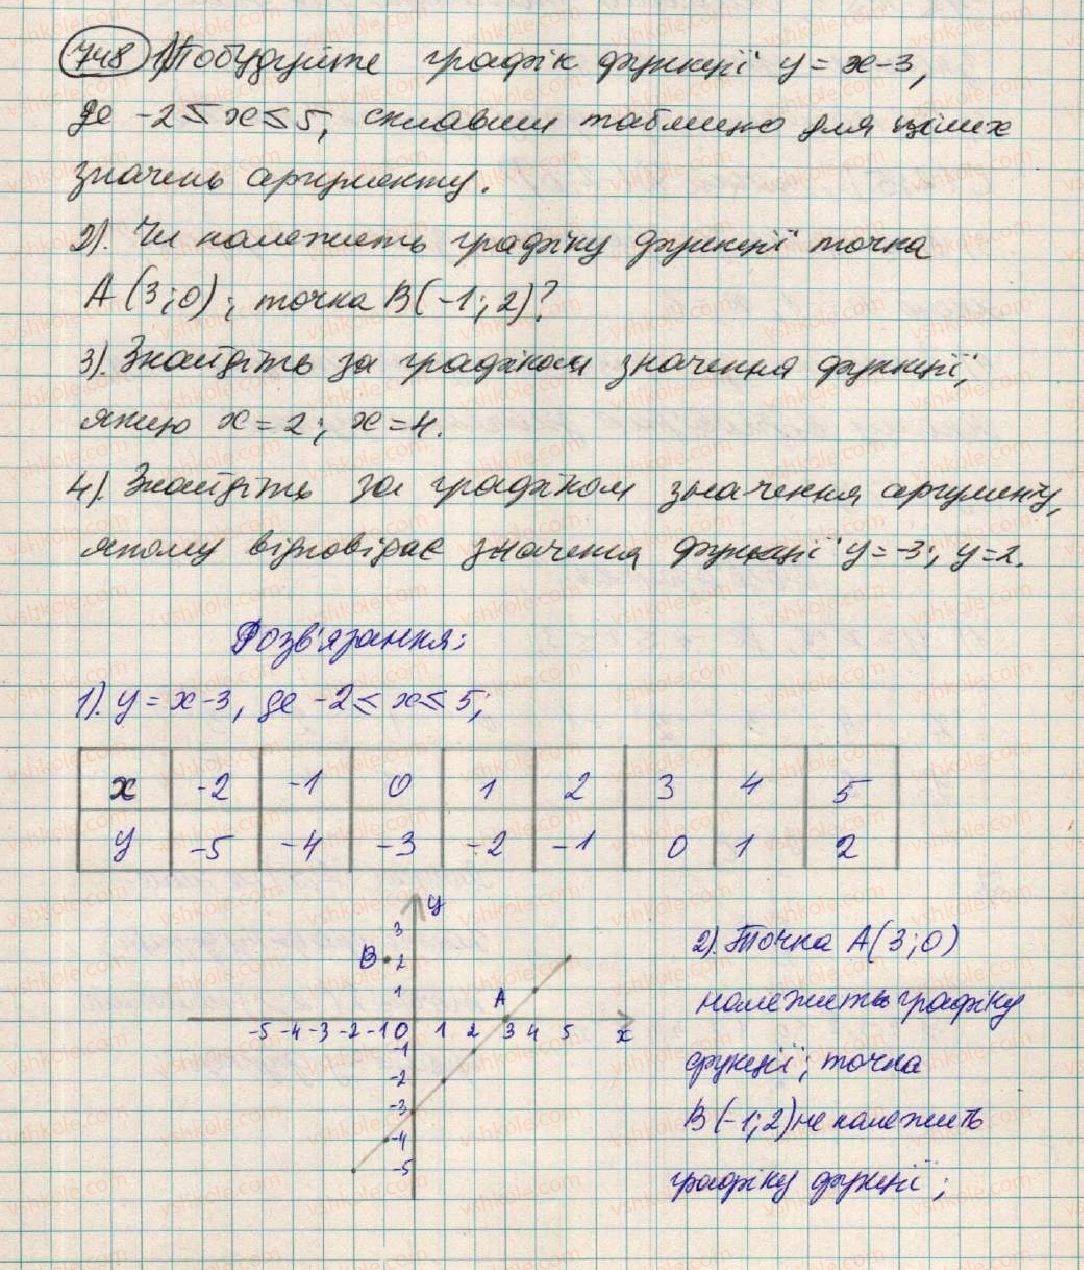 748 1) Побудуйте графік функції y = x-3,
де -2 ≤ x ≤ 5, склавши таблицю для цілих
значень аргументу.
2). Чи належить графіку функції точка
A (3;0); точка B(-1;2)?
3). Знайдіть за графіком значення функції,
якщо x = 2; x = 4.
4). Знайдіть за графіком значення аргументу,
якому відповідає значення функції y = -3; y = 2.
Розв'язання:
1). y = x-3, де -2 ≤ x ≤ 5;
x -2 -1 0 1 2 3 4 5
y -5 -4 -3 -2 -1 0 1 2
y
3
B 2
1
A
-5 -4 -3 -2 -1 0 1 2 3 4 5 x
-1
-2
-3
-4
-5
2). Точка A(3;0)
належить графіку
функції; точка
B(-1;2) не належить
графіку функції;
vshkole.com